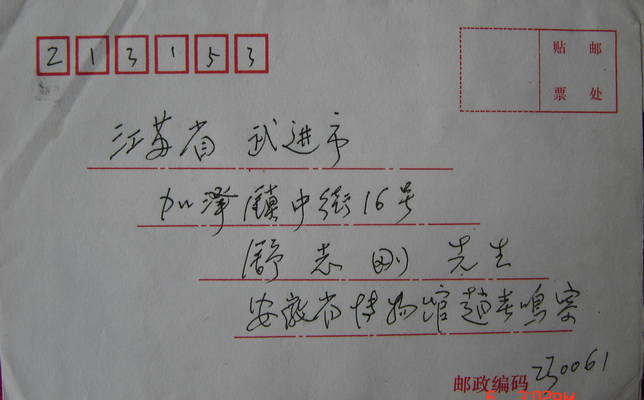 213153
贴 邮
票 处
江苏省 武进市
加泽镇中街16号
舒志刚 先生
安徽省博物館趙春鳴寄
邮政编码 230061